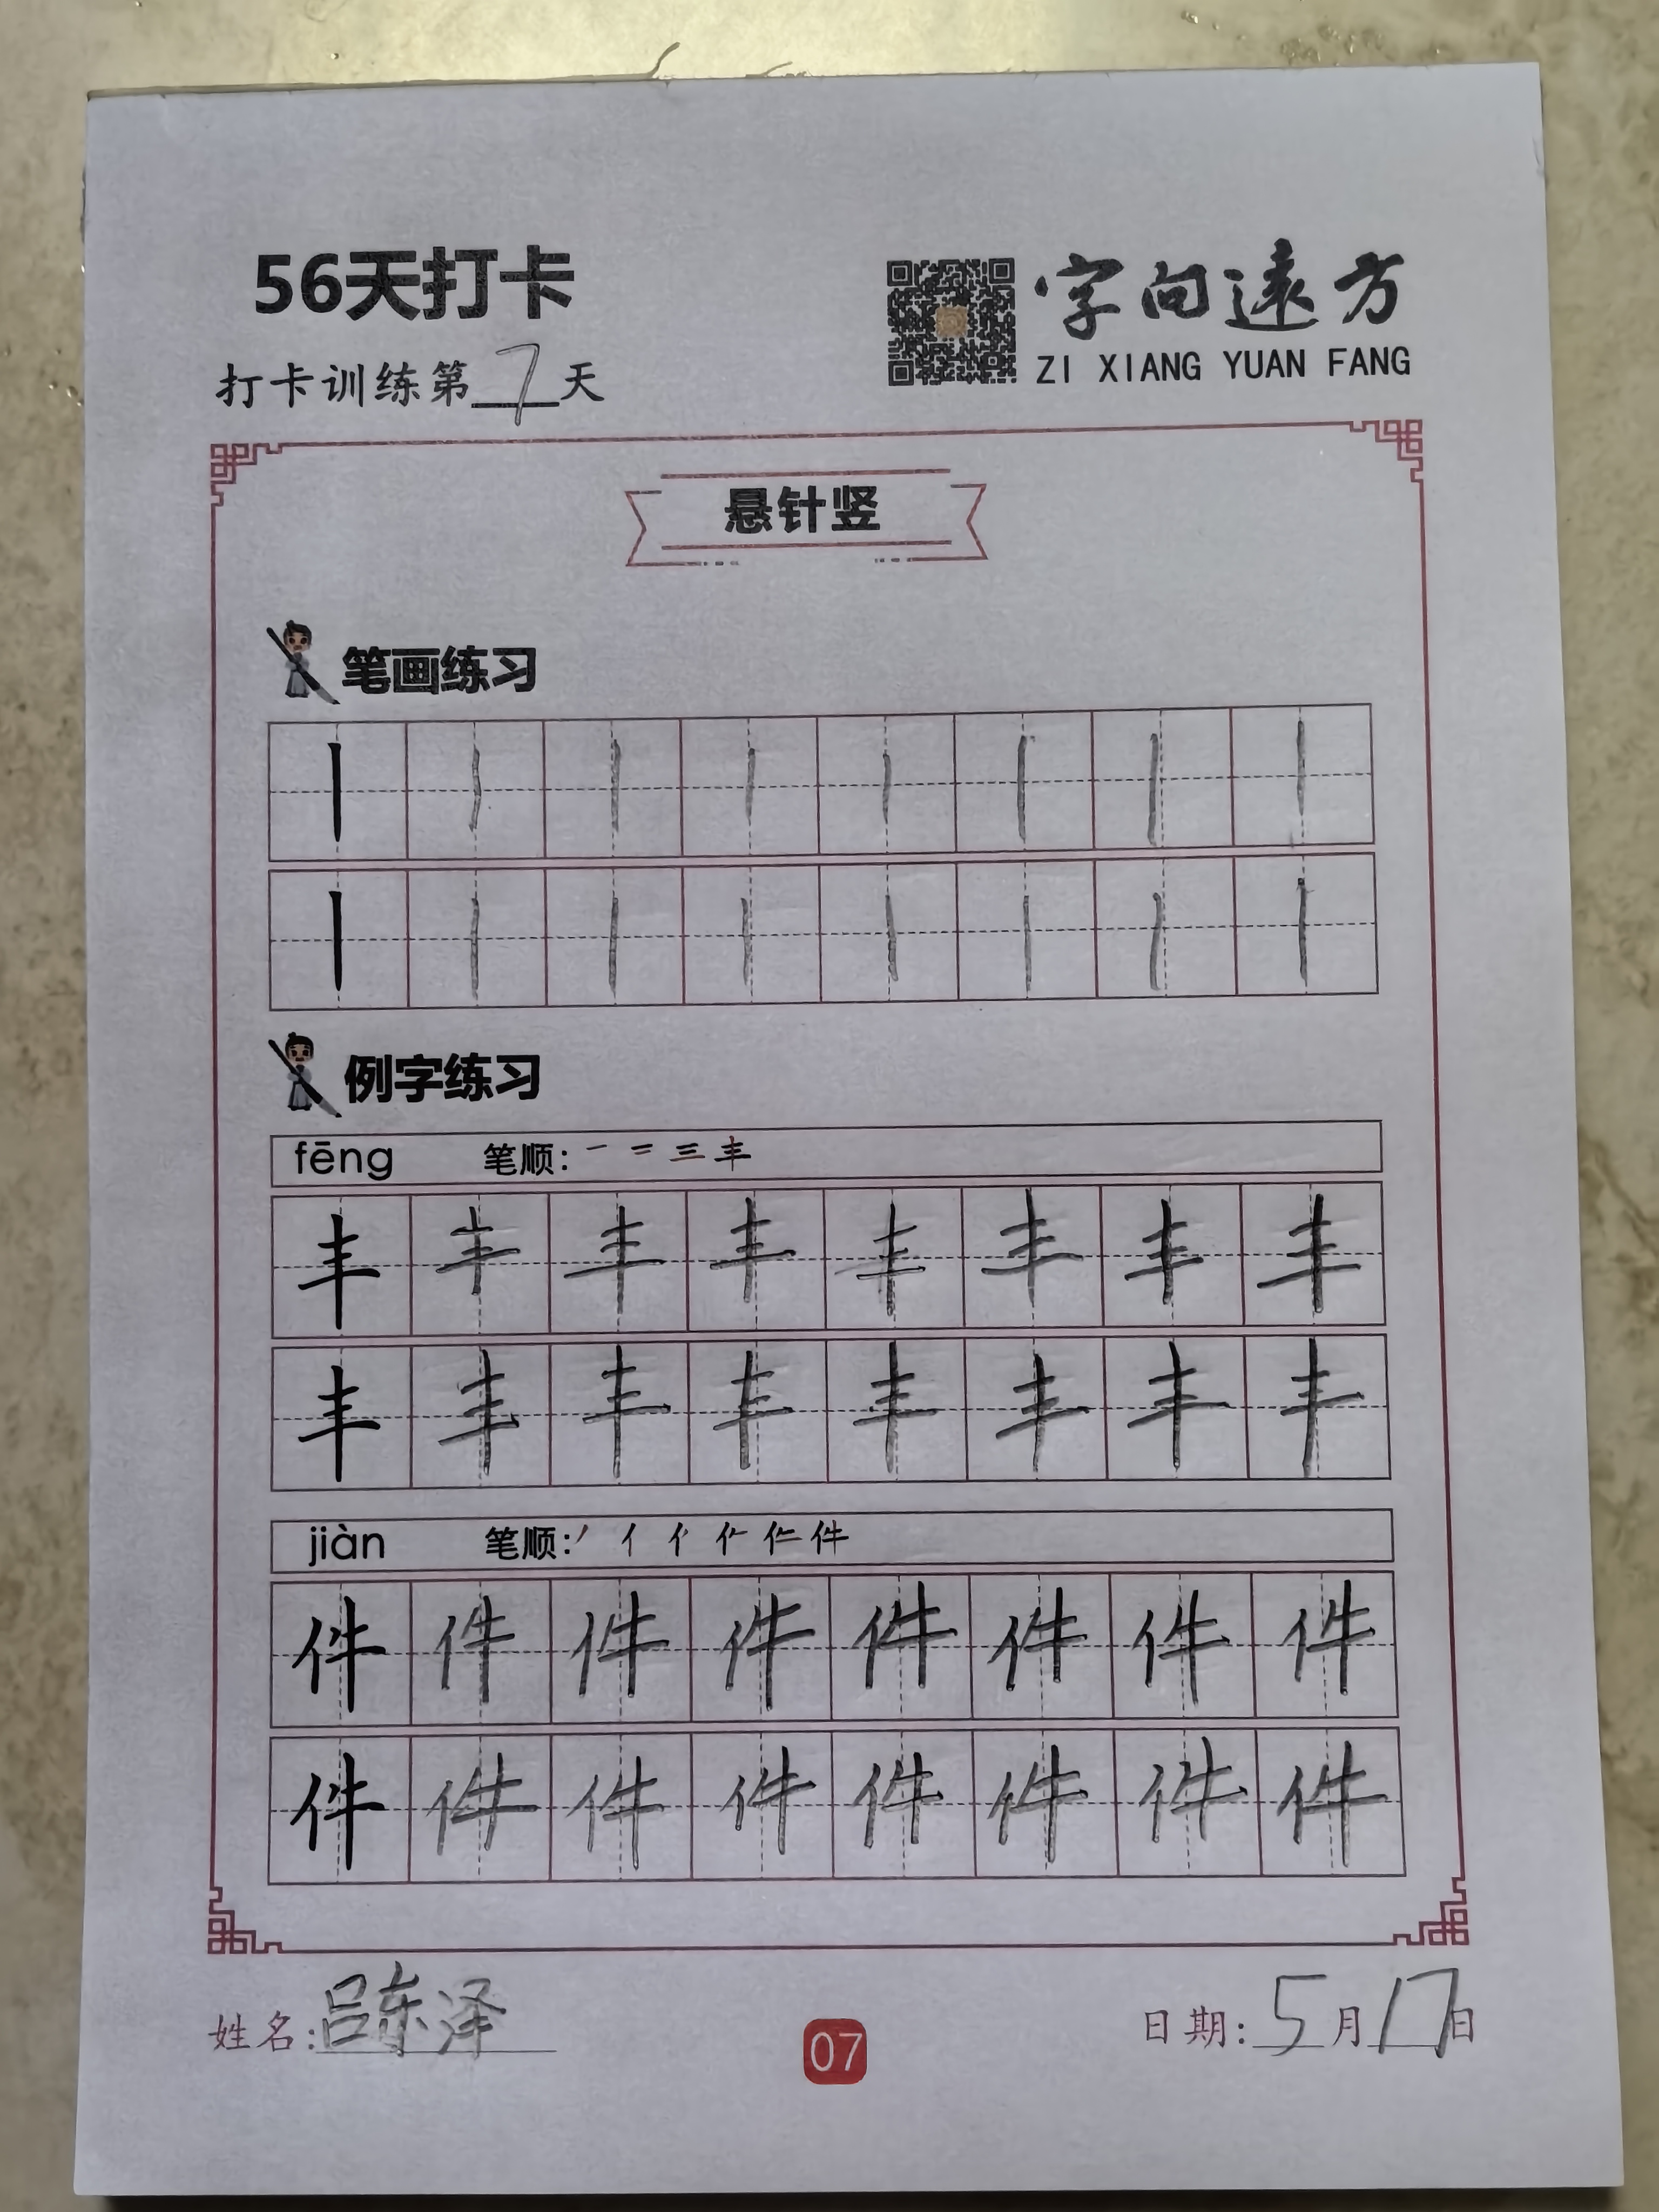 56天打卡
字向遠方
打卡训练第7天
ZI XIANG YUAN FANG
悬针竖
笔画练习
丨丨丨丨丨丨丨丨
丨丨丨丨丨丨丨丨
例字练习
fēng 笔顺: 一 二 三 丰
丰丰丰丰丰丰丰丰
丰丰丰丰丰丰丰丰
jiàn 笔顺: 丿 亻
件件件件件件件件
件件件件件件件件
姓名:吕东泽
07
日期:5月17日